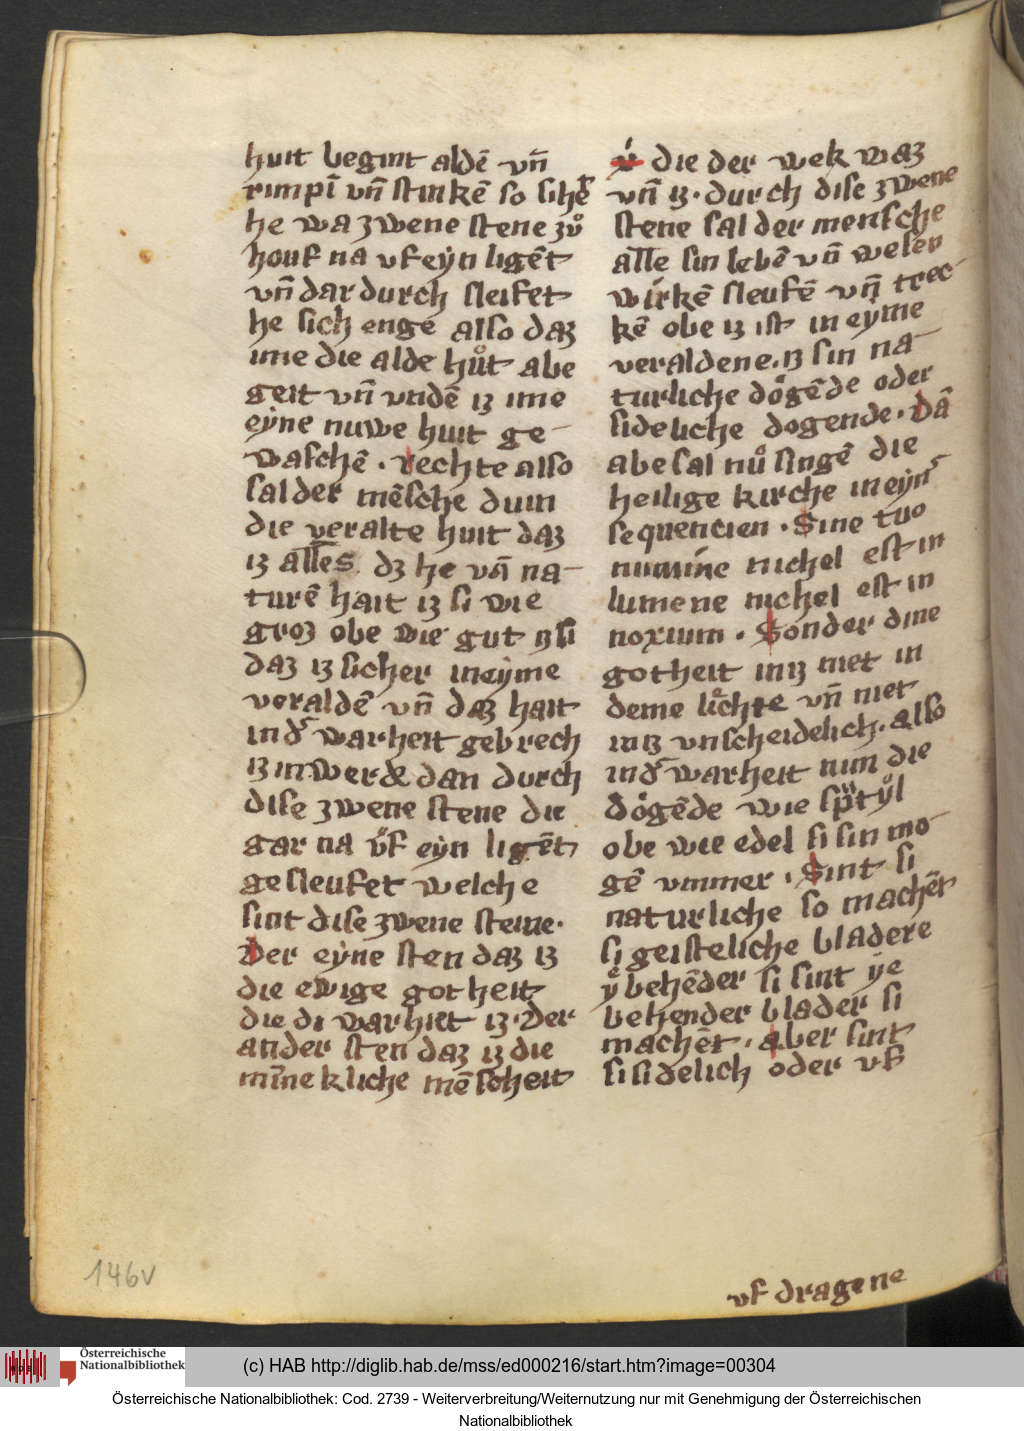 huit begint aldē vn̄
rimpī vn̄ stinkē so siheͬ
he wa zwene stene zů
houf na vf eẏn ligēt
vn̄ dar durch sleifet
he sich enge also daz
ime die alde hůt abe
geit vn̄ vndē iz ime
eẏne nuwe huit ge
waschē . rechte also
sal der mēsche duin
die veralte huit daz
iz alles dz he vā na
turē hait iz si wie
groz obe wie gut iz si
daz iz sicher in eẏme
veraldē vn̄ daz hait
in dͬ warheit gebrech
iz inwerde dan durch
dise zwene stene die
gar na vf eẏn ligēt
gesleufet welche
sint dise zwene steine·
Der eẏne sten daz iz
die ewige gotheit
die di warhiet iz · Der
ander sten daz iz die
mīnekliche mēscheit
die der wek waz
vn̄ iz · durch dise zwene
stene sal der mensche
alle sin lebē vn̄ wesen
wirkē sleufē vn̄ trec
kē obe iz ist in eẏme
veraldene . iz sin na
turliche dogēde oder
sideliche dogende · Dā
abe sal nů singē die
heilige kirche in eẏnͬ
sequencien · Sine tuo
numine nichel est in
lumene nichel est in
noxium . Sonder dine
gotheit in iz niet in
deme lůchte vn̄ niet
in iz vnscheidelich . also
in dͬ warheit nun die
dogēde wie spͣtẏl
obe wie edel si sin mo
gē vmmer . Sint si
naturliche so machēt
si geisteliche bladere
ẏ behēder si sint ẏe
behender blader si
machēt . aber sint
si sidelich oder vf
vf dragene
146v
(c) HAB http://diglib.hab.de/mss/ed000216/start.htm?image=00304
Österreichische
Nationalbibliothek
Österreichische Nationalbibliothek: Cod. 2739 - Weiterverbreitung/Weiternutzung nur mit Genehmigung der Österreichischen
Nationalbibliothek